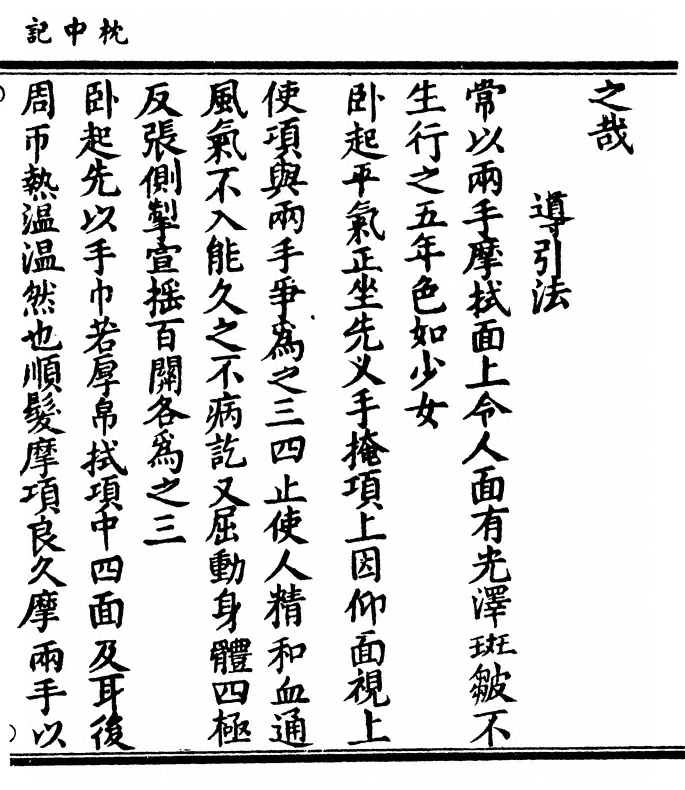 枕中記
之哉
導引法
常以兩手摩拭面上令人面有光澤斑皺不
生行之五年色如少女
卧起平氣正坐先义手掩項上因仰面視上
使項與兩手爭為之三四止使人精和血通
風氣不入能久之不病訖又屈動身體四極
反張側掣宣揺百關各為之三
卧起先以手巾若厚帛拭項中四面及耳後
周帀熱温温然也順髮摩項良久摩兩手以